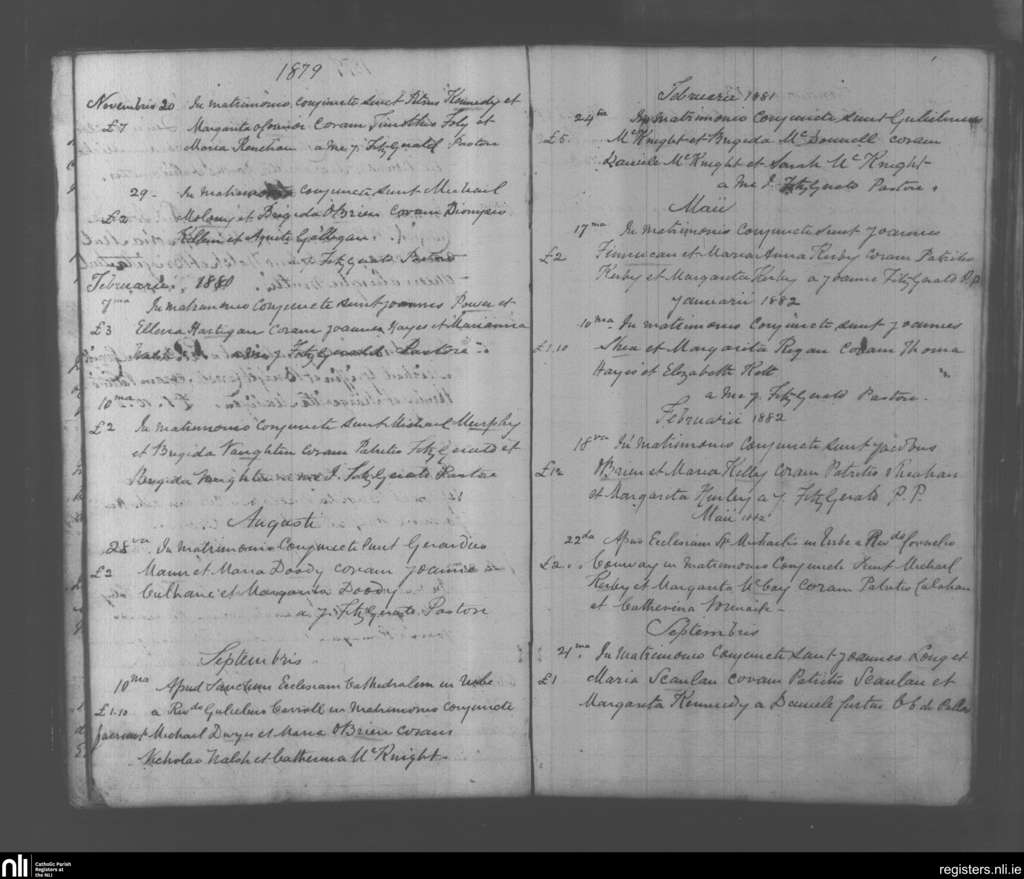 1879
Novembris 20 In matrimonio conjuncti sunt Petrus Kennedy et
£7 Margarita O'Connor Coram Timotheo Foly et
Maria Renehan a me J. FitzGerald Pastore
29. In matrimonio conjuncti sunt Michael
£2 Molony et Brigida O'Brien Coram Dionysio
Killin et Agnite Gallagan.
J FitzGerald Pastore
Februarii. 1880
7ma In matrimonio Conjuncti sunt Joannes Power et
£3 Ellena Hartigan Coram Joanne Hayes et Marianna
a me J. FitzGerald Pastore
10ma
£2 In matrimonio Conjuncti sunt Michael Murphy
et Brigida Naughten coram Patritio FitzGerald et
Brigida Naughten a me J. FitzGerald Pastore
Augusti
28va In Matrimonio Conjuncti sunt Gerardus
£2 Mann et Maria Doody coram Joanne
Culhane et Margarita Doody
a J. FitzGerald Pastore
Septembris
10ma Apud Ecclesiam Cathedralem in Urbe
£1.10 a Revdo Gulielmo Carroll in Matrimonio Conjuncti
Michael Dwyer et Maria O'Brien coram
Nicholao Walsh et Catherina McKnight
Februarii 1881
24ta In Matrimonio Conjuncti sunt Gulielmus
£5. McKnight et Brigida McDonnell coram
Daniele McKnight et Sarah McKnight
a me J. FitzGerald Pastore.
Maii
17ma In Matrimonio Conjuncti sunt Joannes
£2 Finnucan et Maria Anna Kirby Coram Patritio
Kirby et Margarita Kirby a Joanne FitzGerald P.P
Januarii 1882
10ma In matrimonio Conjuncti sunt Joannes
£1.10 Shea et Margarita Regan Coram Thoma
Hayes et Elizabeth Hett
a me J. FitzGerald Pastore.
Februarii 1882
18va In Matrimonio Conjuncti sunt Jacobus
£12 O'Brien et Maria Kelley coram Patritio Sheahan
et Margarita Hurley a J. FitzGerald P.P.
Maii 1882
22da Apud Ecclesiam St Michaelis in Urbe a Revdo Cornelio
£2. Conway in Matrimonio Conjuncti sunt Michael
Kirby et Margarita McCoy coram Patritio Calahan
et Catherina
Septembris
21ma In Matrimonio Conjuncti sunt Joannes Long et
£1 Maria Scanlan coram Patritio Scanlan et
Margarita Kennedy a Daniele
nli Catholic Parish
Registers at
the NLI
registers.nli.ie